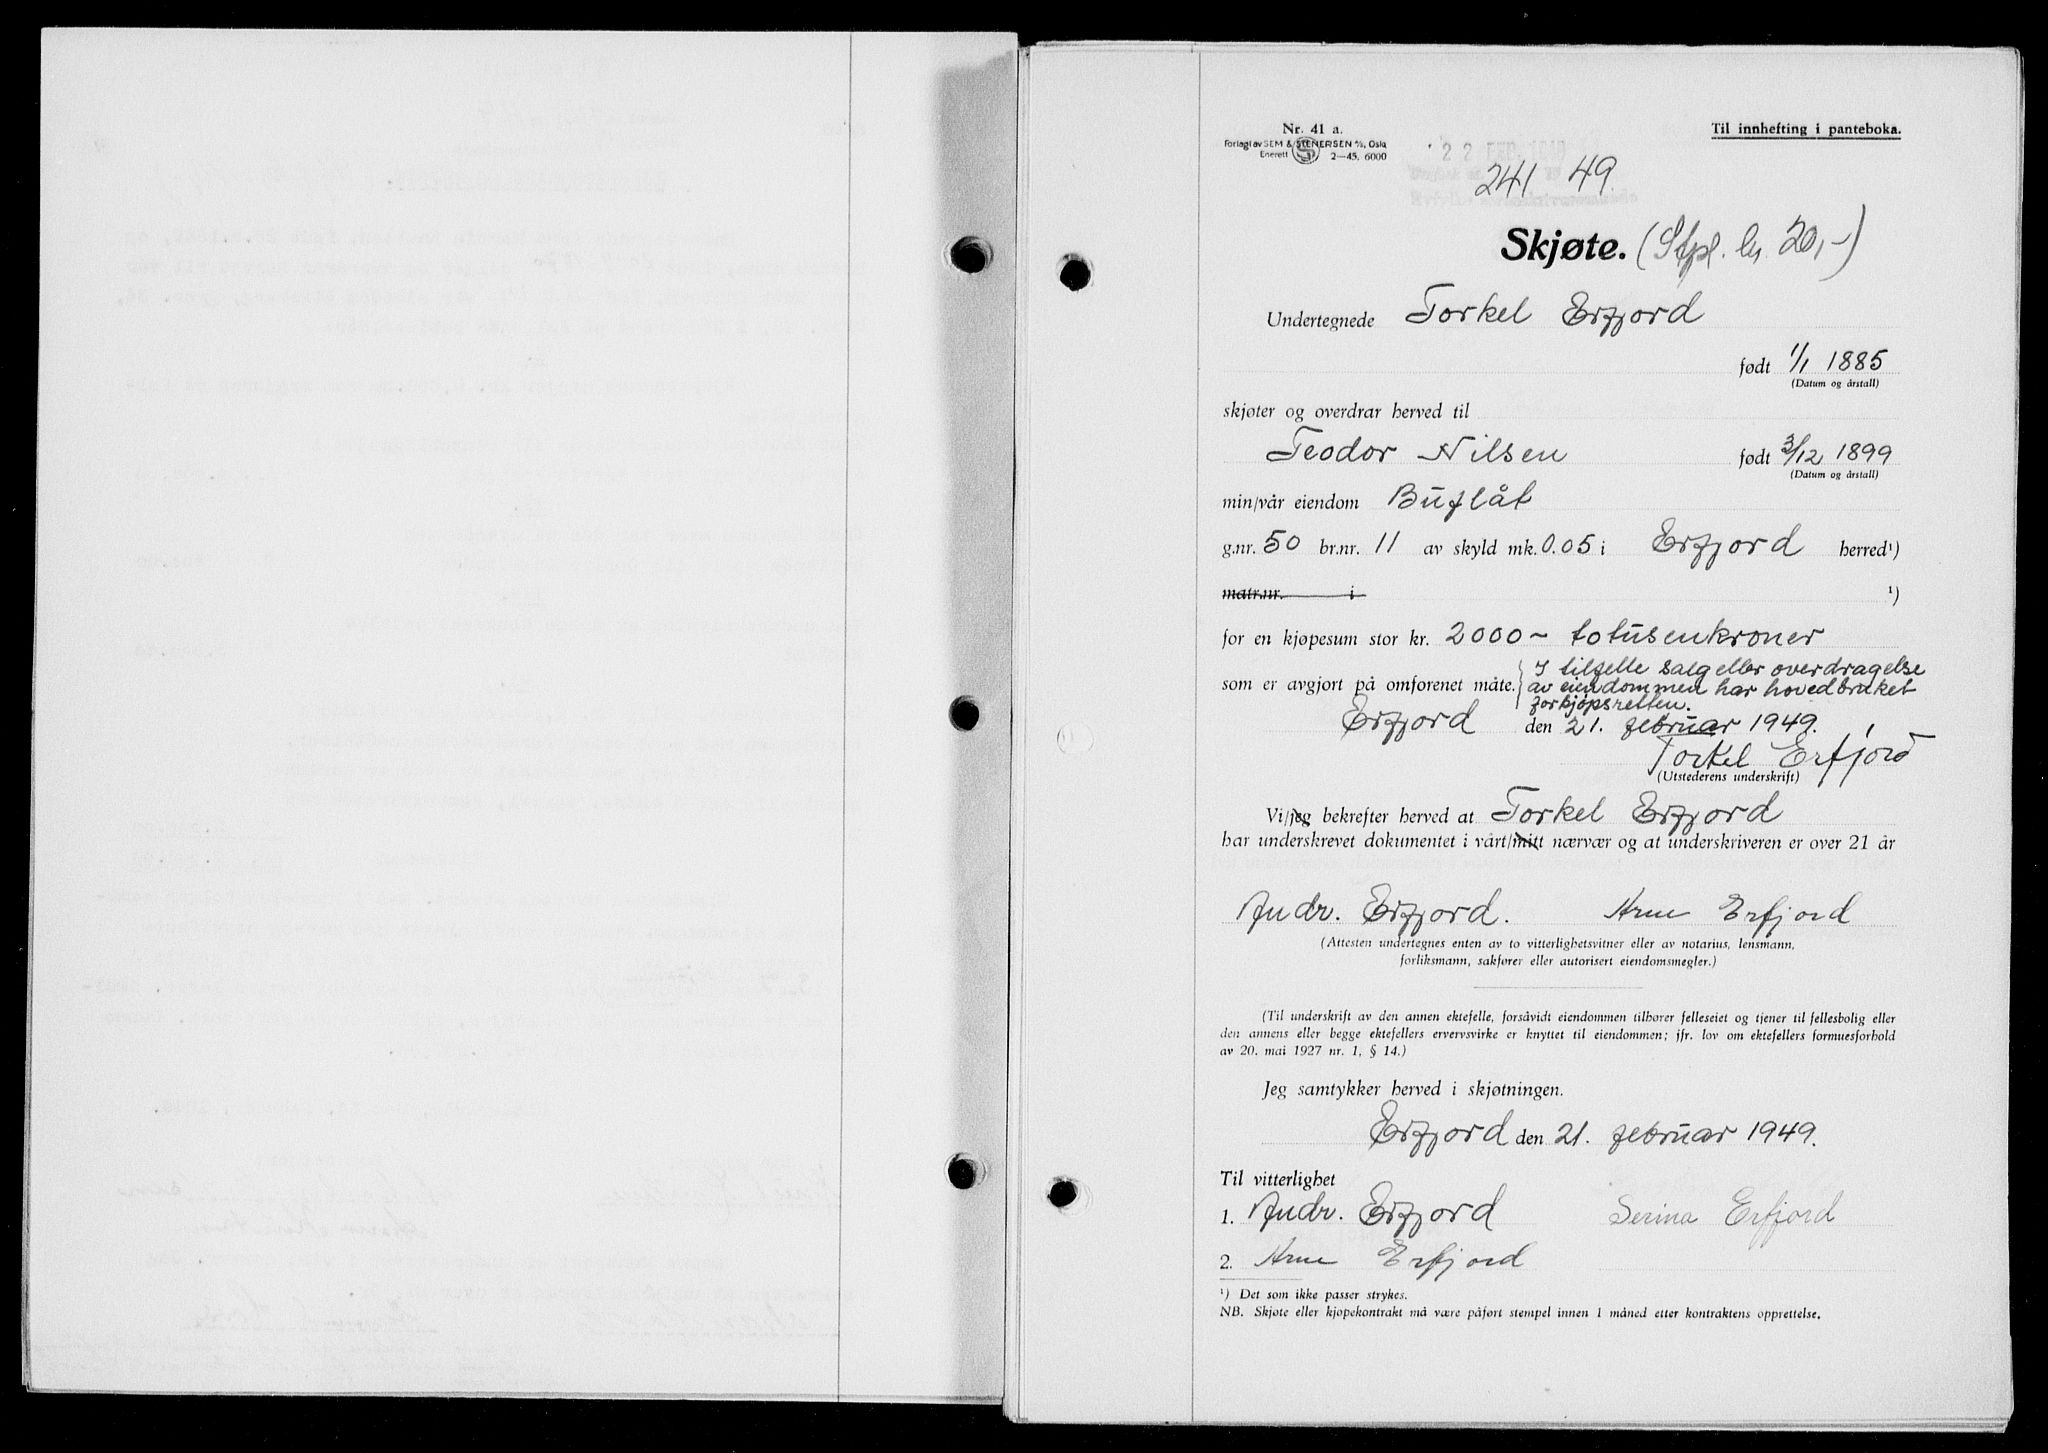 Nr. 41 a.
Til innhefting i panteboka.
Forlagt av SEM & STENERSEN A/S, Oslo
Enerett 2-45. 6000
22 FEB. 1949
241 49
Skjøte. (Stpl. kr. 20,-)
Undertegnede Torkel Erfjord
født 1/1 1885
(Datum og årstall)
skjøter og overdrar herved til
Teodor Nilsen født 3/12 1899
(Datum og årstall)
min/vår eiendom Buflåt
g.nr. 50 br.nr. 11 av skyld mk. 0.05 i Erfjord herred¹)
matr.nr. i ¹)
for en kjøpesum stor kr. 2000 - totusenkroner
som er avgjort på omforenet måte. I tilfelle salg eller overdragelse
av eiendommen har hovedbruket
forkjøpsretten.
Erfjord den 21. februar 1949.
Torkel Erfjord
(Utstederens underskrift)
Vi/jeg bekrefter herved at Torkel Erfjord
har underskrevet dokumentet i vårt/mitt nærvær og at underskriveren er over 21 år
Andr. Erfjord. Arne Erfjord
(Attesten undertegnes enten av to vitterlighetsvitner eller av notarius, lensmann,
forliksmann, sakfører eller autorisert eiendomsmegler.)
(Til underskrift av den annen ektefelle, forsåvidt eiendommen tilhører felleseiet og tjener til fellesbolig eller
den annens eller begge ektefellers ervervsvirke er knyttet til eiendommen; jfr. lov om ektefellers formuesforhold
av 20. mai 1927 nr. 1, § 14.)
Jeg samtykker herved i skjøtningen.
Erfjord den 21. februar 1949.
Til vitterlighet
1. Andr. Erfjord Serina Erfjord
2. Arne Erfjord
¹) Det som ikke passer strykes.
NB. Skjøte eller kjøpekontrakt må være påført stempel innen 1 måned etter kontraktens opprettelse.